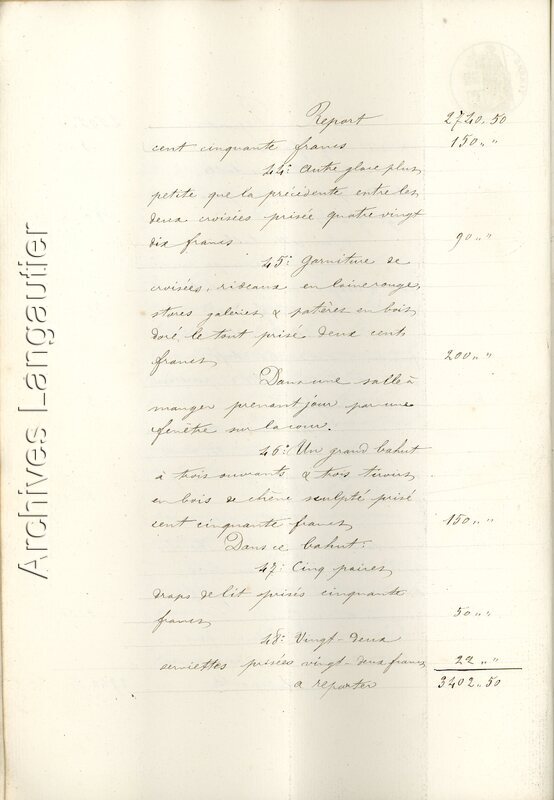 Report 2740.50
cent cinquante francs 150 „ „
44° Autre glace plus
petite que la précédente entre les
deux croisées prisée quatre vingt
dix francs 90 „ „
45° Garniture de
croisées, rideaux en laine rouge,
stores galeries & patères en bois
doré, le tout prisé deux cents
francs 200 „ „
Dans une salle à
manger prenant jour par une
fenêtre sur la cour.
46° Un grand bahut
à trois ouvrants & trois tiroirs
en bois de chêne sculpté prisé
cent cinquante francs 150 „ „
Dans ce bahut:
47° Cinq paires
draps de lit prisés cinquante
francs 50 „ „
48° Vingt-deux
serviettes prisées vingt-deux francs 22 „ „
a reporter 3402.50
Archives Langautier